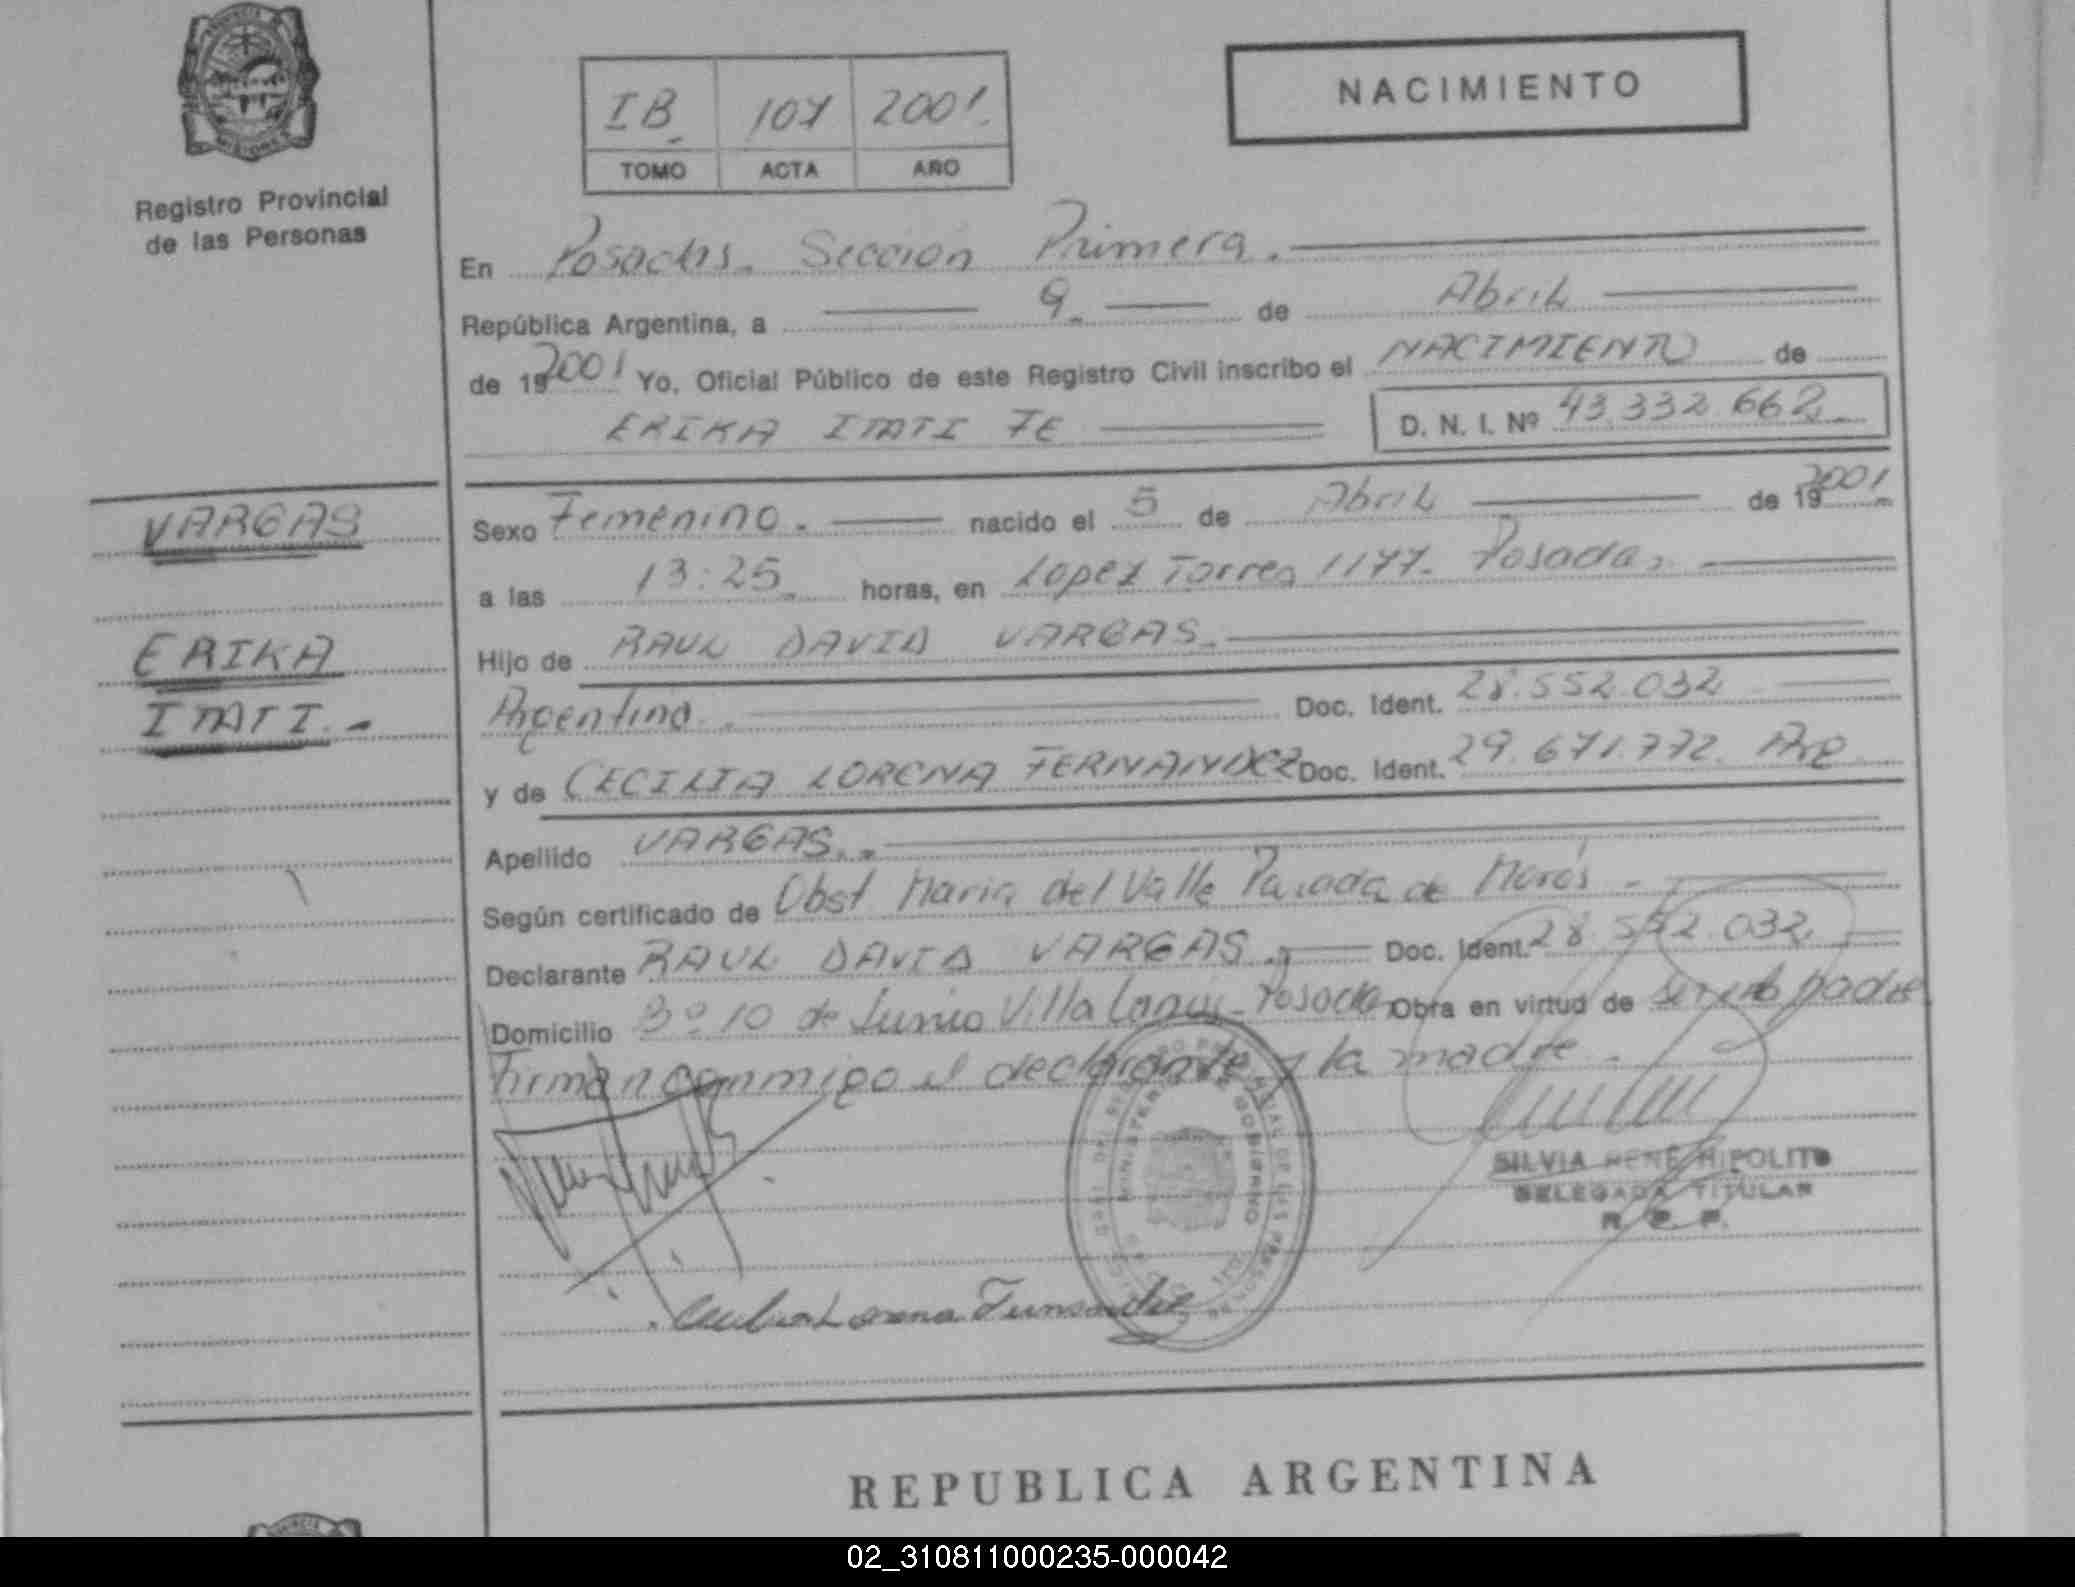 PROVINCIA DE
MISIONES
Registro Provincial
de las Personas
IB 107 2001
TOMO ACTA AÑO
NACIMIENTO
En Posadas. Sección Primera.
República Argentina, a 9 de Abril
de 19 2001 Yo, Oficial Público de este Registro Civil inscribo el NACIMIENTO de
ERIKA ITATI FE D. N. I. Nº 43.332.662
VARGAS
ERIKA
ITATI.-
Sexo Femenino. nacido el 5 de Abril de 19 2001
a las 13:25 horas, en Lopez Torres 1177. Posadas
Hijo de RAUL DAVID VARGAS.
Argentino. Doc. Ident. 28.552.032
y de CECILIA LORENA FERNANDEZ Doc. Ident. 29.671.772. Arg
Apellido VARGAS.
Según certificado de Obst Maria del Valle Parada de Morós
Declarante RAUL DAVID VARGAS. Doc. Ident. 28.552.032
Domicilio Bº 10 de Junio Villa Lanús - Posadas Obra en virtud de ser el padre
Firman conmigo el declarante y la madre.
MINISTERIO DE GOBIERNO
SILVIA RENE HIPOLITO
DELEGADA TITULAR
R. P. P.
Cecilia Lorena Fernandez
REPUBLICA ARGENTINA
02_310811000235-000042